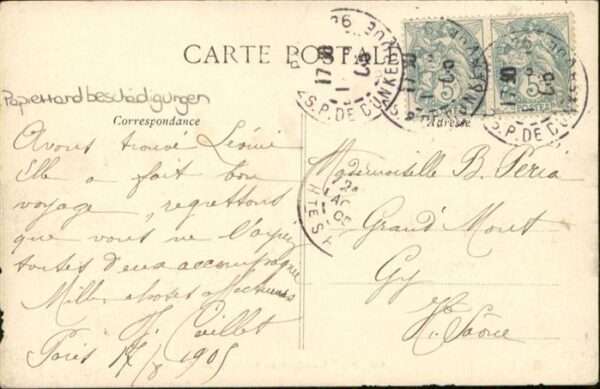 CARTE POSTALE
Papierrandbeschädigungen
Correspondance
Adresse
Avons trouvé Léonie
Elle a fait bon
voyage, regrettons
que vous ne l'ayez
toutes deux accompagnée
Milles choses affectueuses
Caillet
Paris 17/8 1905
Mademoiselle B. Peria
Grand' Mont
Gy
Hte Saône
17 30
R. P. DE DUNKERQUE
17 30
POSTES